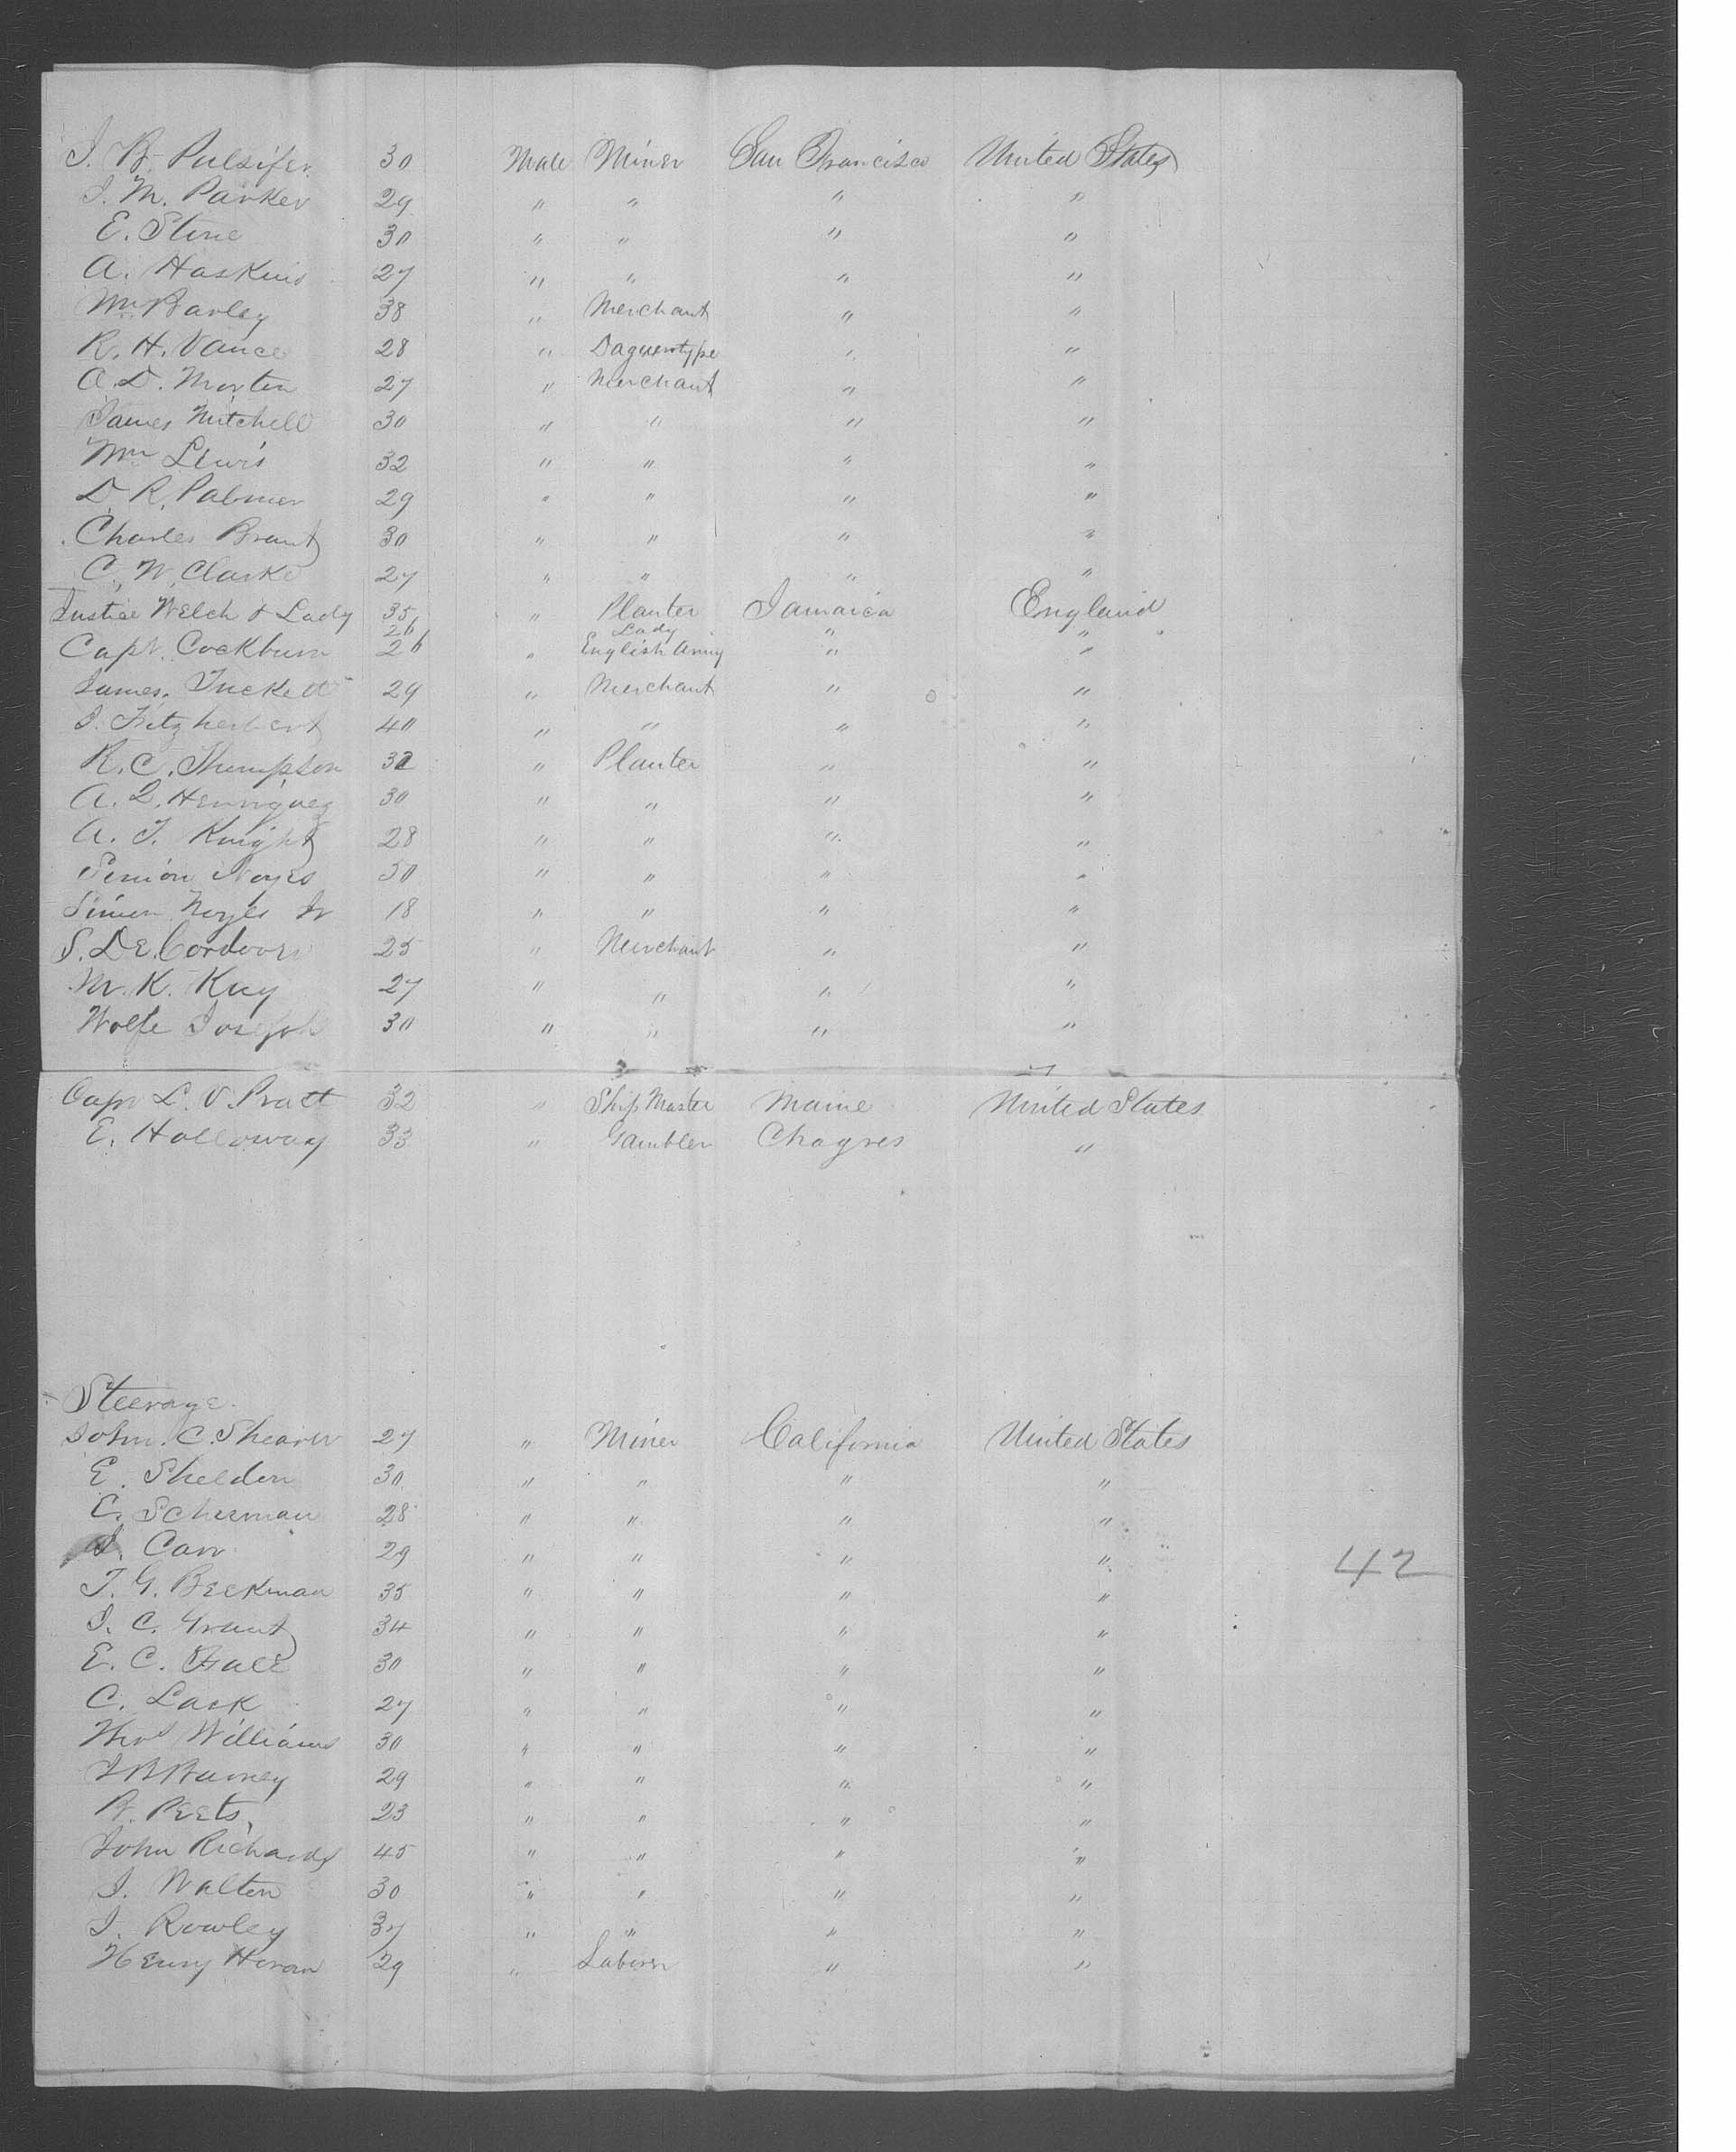 J. B. Pulsifer 30 Male Miner San Francisco United States
J. M. Parker 29 " " " "
E. Stone 30 " " " "
A. Haskins 27 " " " "
Wm Barley 38 " Merchant " "
R. H. Vance 28 " Daguerotype " "
A. D. Morten 27 " Merchant " "
James Mitchell 30 " " " "
Wm Lewis 32 " " " "
D. R. Palmer 29 " " " "
Charles Brant 30 " " " "
C. W. Clarke 27 " " " "
Justice Welch & Lady 35 " Planter Jamaica England
26 Lady " "
Capt. Cockburn 26 " English Army " "
James Tuckett 29 " Merchant " "
J. Fitzherbert 40 " " " "
R. C. Thompson 32 " Planter " "
A. Q. Henriquez 30 " " " "
A. J. Knight 28 " " " "
Simion Noyes 50 " " " "
Simion Noyes Jr 18 " " " "
S. De Cordova 25 " Merchant " "
M. K. Kay 27 " " " "
Wolfe Joseph 30 " " " "
Capt L. V. Pratt 32 " Ship Master Maine United States
E. Holloway 33 " Gambler Chagres "
Steerage
John. C. Shearer 27 " Miner California United States
E. Shelden 30 " " " "
E. Scherman 28 " " " "
J. Carr 29 " " " "
T. G. Beekman 35 " " " "
J. C. Grant 34 " " " "
E. C. Hall 30 " " " "
C. Lack 27 " " " "
Thos Williams 30 " " " "
J B Burney 29 " " " "
B. Peets 23 " " " "
John Richards 45 " " " "
J. Walten 30 " " " "
J. Rowley 37 " " " "
Henry Horan 29 " Laborer " "
42